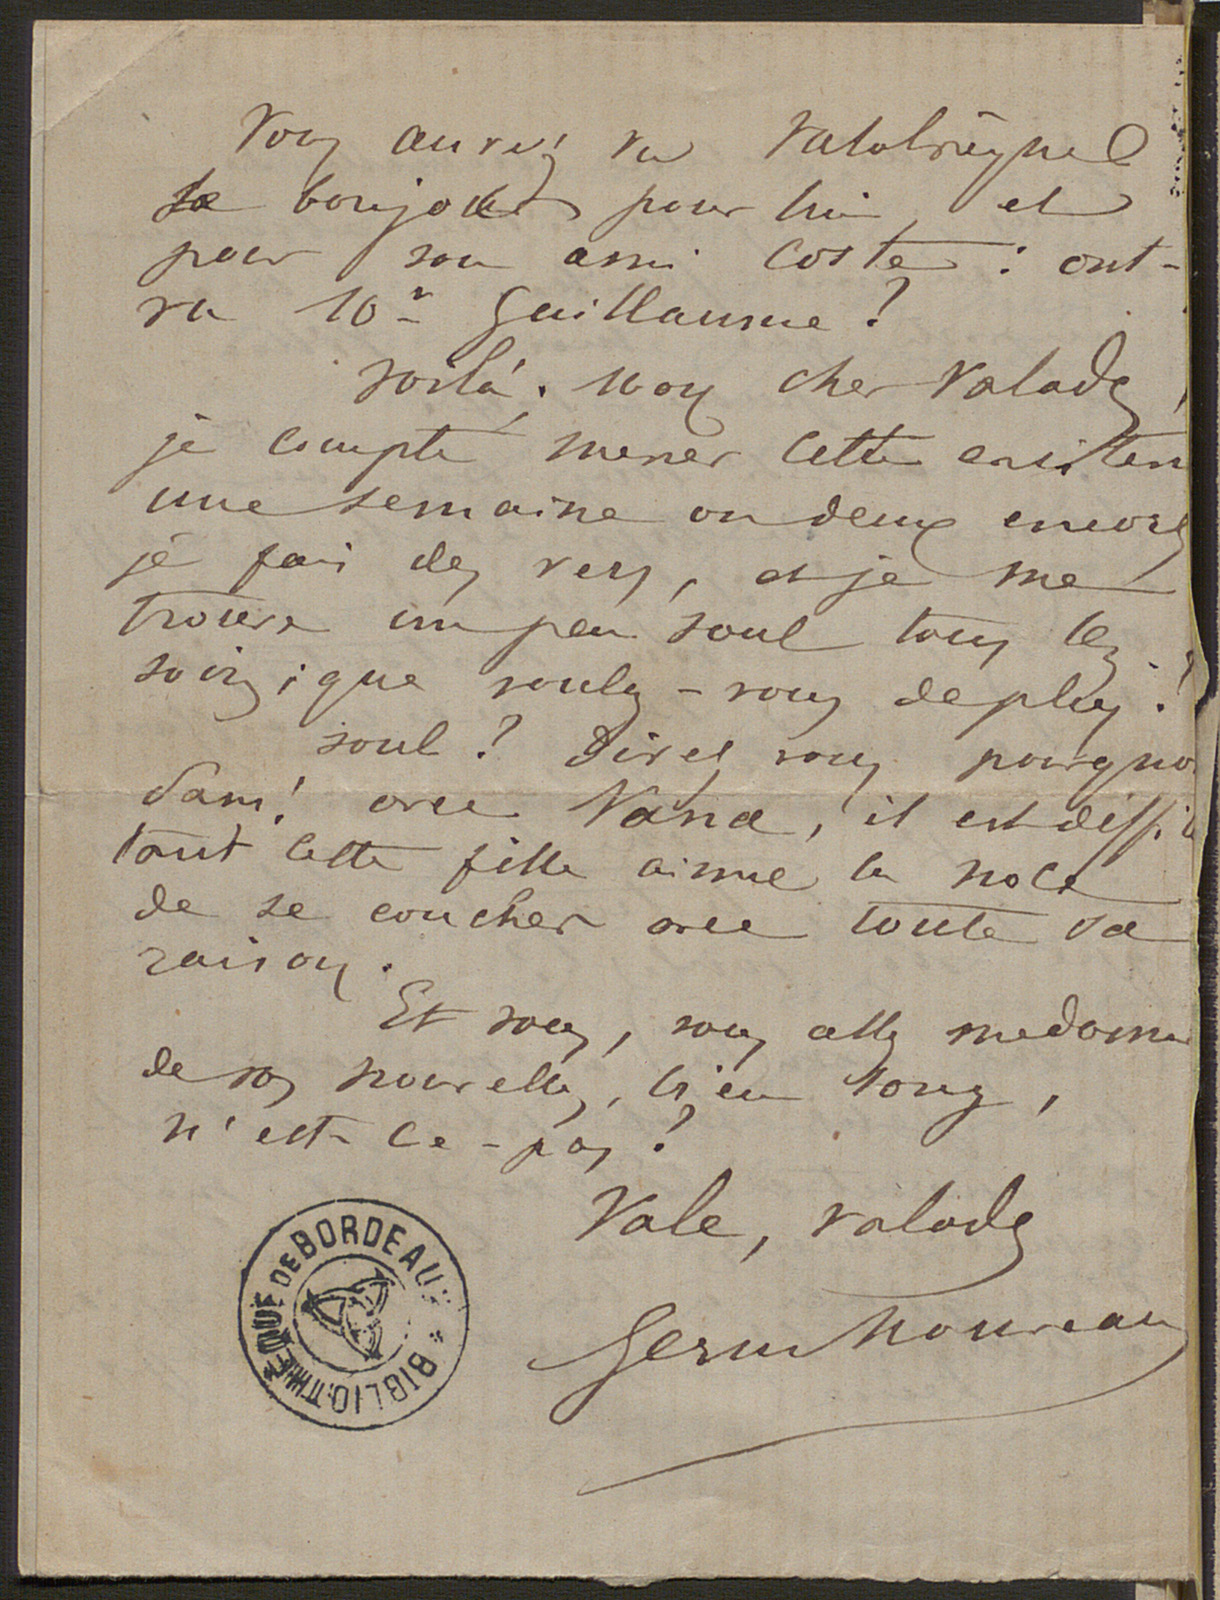 Vous aurez vu Valabrègue
le bonjour pour lui et
pour son ami Coste : ont-
vu Mr Guillaume ?
Voilà, mon cher Valade,
je compte mener cette existen
une semaine ou deux encore
je fais des vers, et je me
trouve un peu soul tous les
soirs ; que voulez-vous de plus ?
soul ? Direz vous pourquo
dam ! avec Nana, il est diffi
tant cette fille aime la noce
de se coucher avec toute sa
raison.
Et vous, vous allez me donner
de vos nouvelles, bien long,
n'est-ce-pas ?
Vale, Valade
Germ Nouveau
BIBLIOTHEQUE DE BORDEAUX